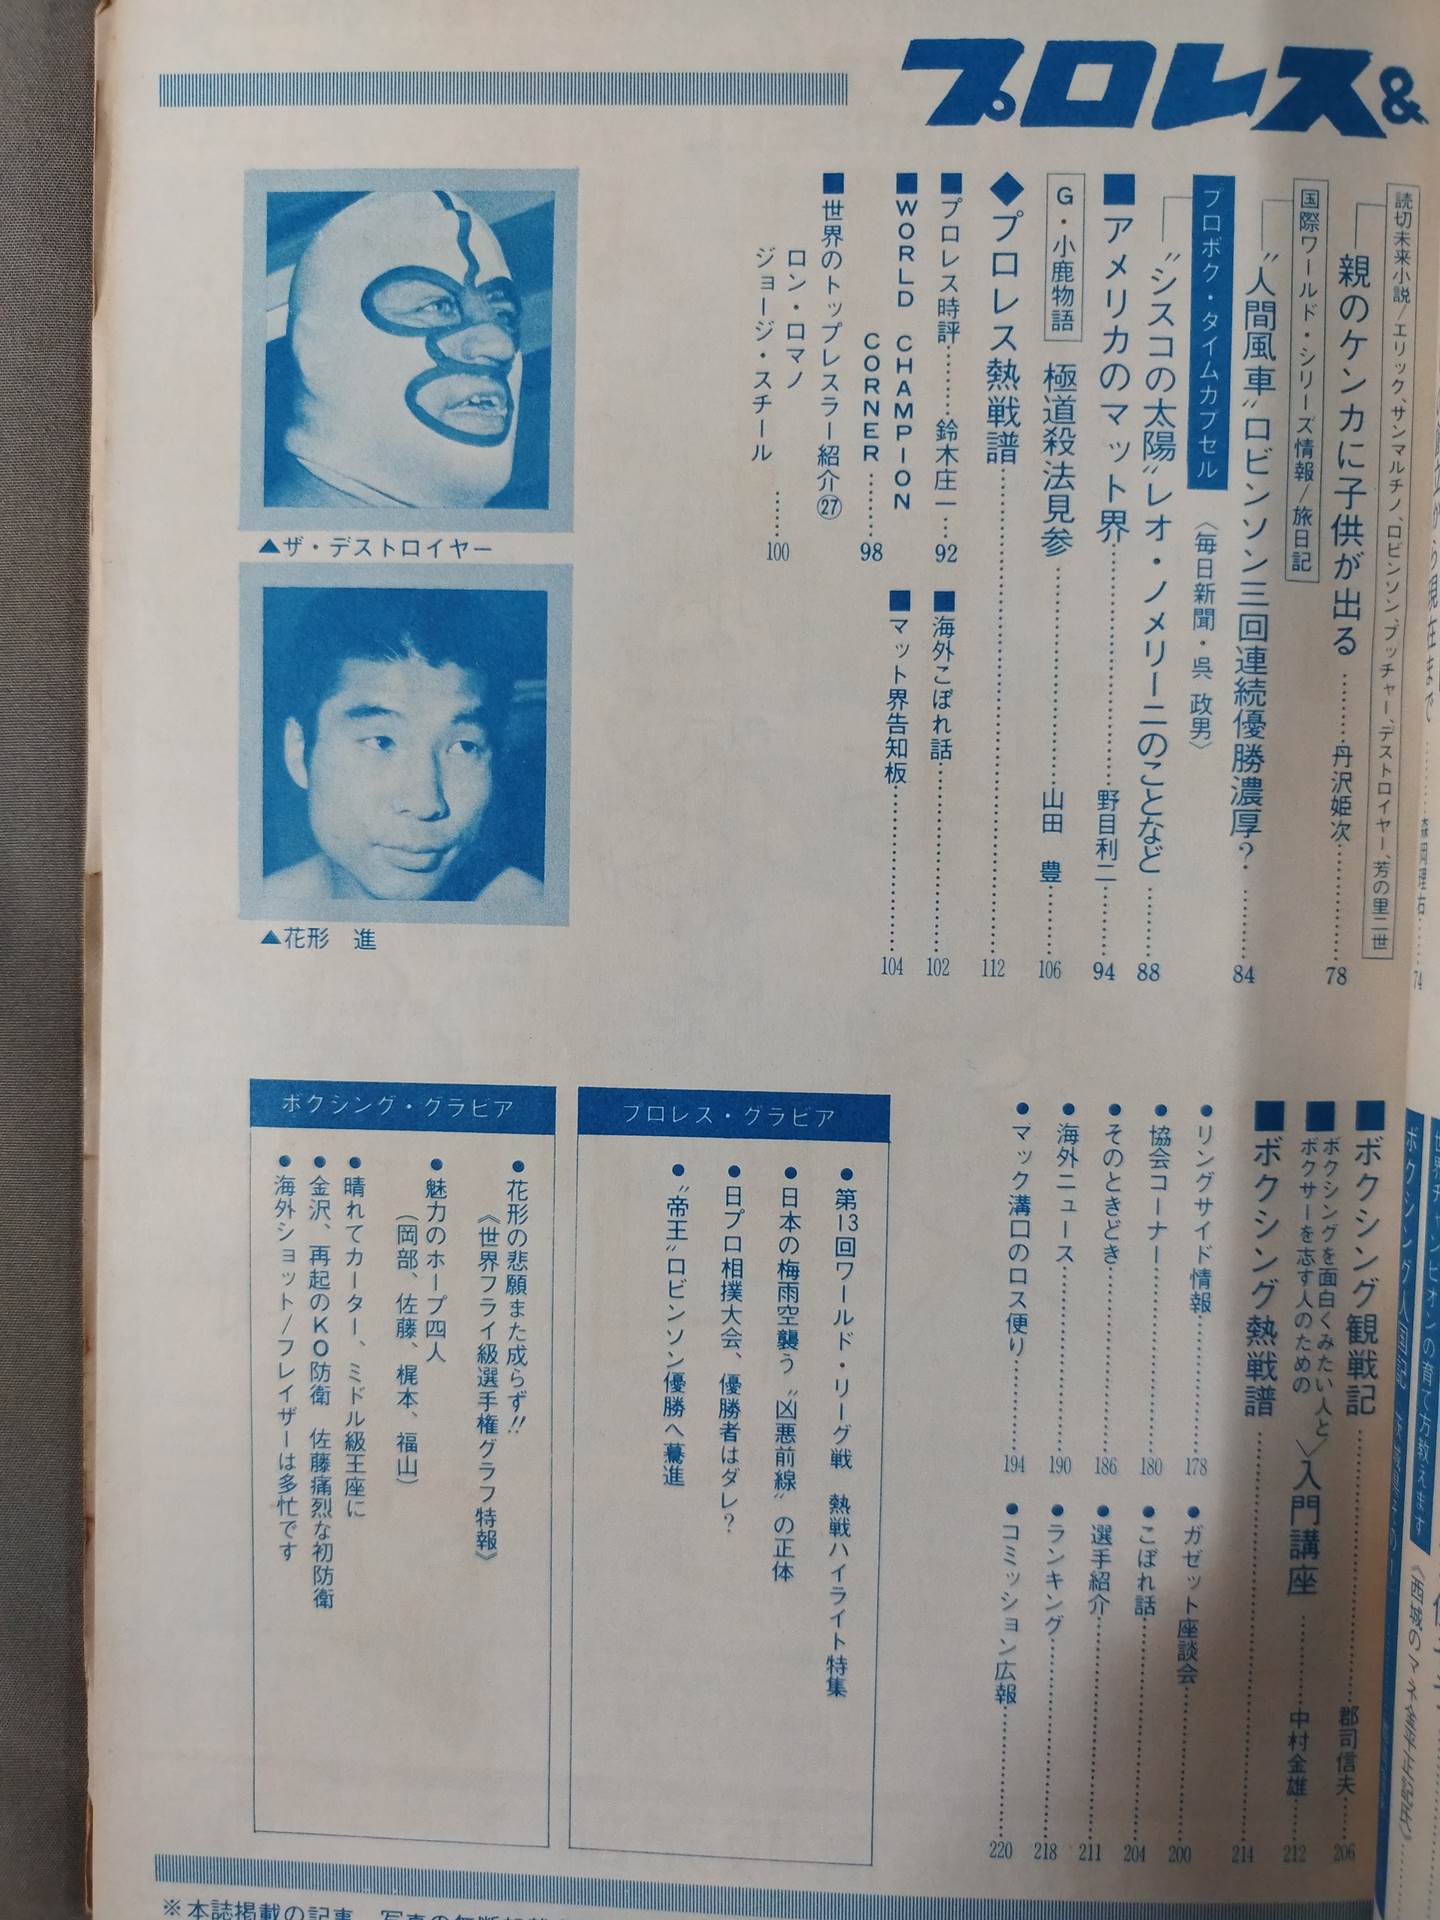 プロレス&
から現在まで
森岡理右……74
読切未来小説/エリック、サンマルチノ、ロビンソン、ブッチャー、デストロイヤー、芳の里二世
親のケンカに子供が出る……丹沢姫次……78
国際ワールド・シリーズ情報/旅日記
〝人間風車〟ロビンソン三回連続優勝濃厚?……84
プロボク・タイムカプセル
〈毎日新聞・呉 政男〉
〝シスコの太陽〟レオ・ノメリーニのことなど……88
■アメリカのマット界……野目利二……94
G・小鹿物語
極道殺法見参……山田 豊……106
◆プロレス熱戦譜……112
■プロレス時評……鈴木庄一…92
■海外こぼれ話……102
■WORLD CHAMPION
CORNER……98
■マット界告知板……104
■世界のトップレスラー紹介㉗
ロン・ロマノ
ジョージ・スチール……100
▲ザ・デストロイヤー
▲花形 進
世界チャンピオンの育て方教えます
ボクシング人国記
■ボクシング観戦記……郡司信夫…206
■ボクシングを面白くみたい人と
ボクサーを志す人のための
入門講座……中村金雄…212
■ボクシング熱戦譜……214
●リングサイド情報……178
●ガゼット座談会……200
●協会コーナー……180
●こぼれ話……204
●そのときどき……186
●選手紹介……211
●海外ニュース……190
●ランキング……218
●マック溝口のロス便り……194
●コミッション広報……220
プロレス・グラビア
●第13回ワールド・リーグ戦 熱戦ハイライト特集
●日本の梅雨空襲う〝凶悪前線〟の正体
●日プロ相撲大会、優勝者はダレ?
●〝帝王〟ロビンソン優勝へ驀進
ボクシング・グラビア
●花形の悲願また成らず!!
《世界フライ級選手権グラフ特報》
●魅力のホープ四人
(岡部、佐藤、梶本、福山)
●晴れてカーター、ミドル級王座に
●金沢、再起のKO防衛 佐藤痛烈な初防衛
●海外ショット/フレイザーは多忙です
※本誌掲載の記事、写真の無断